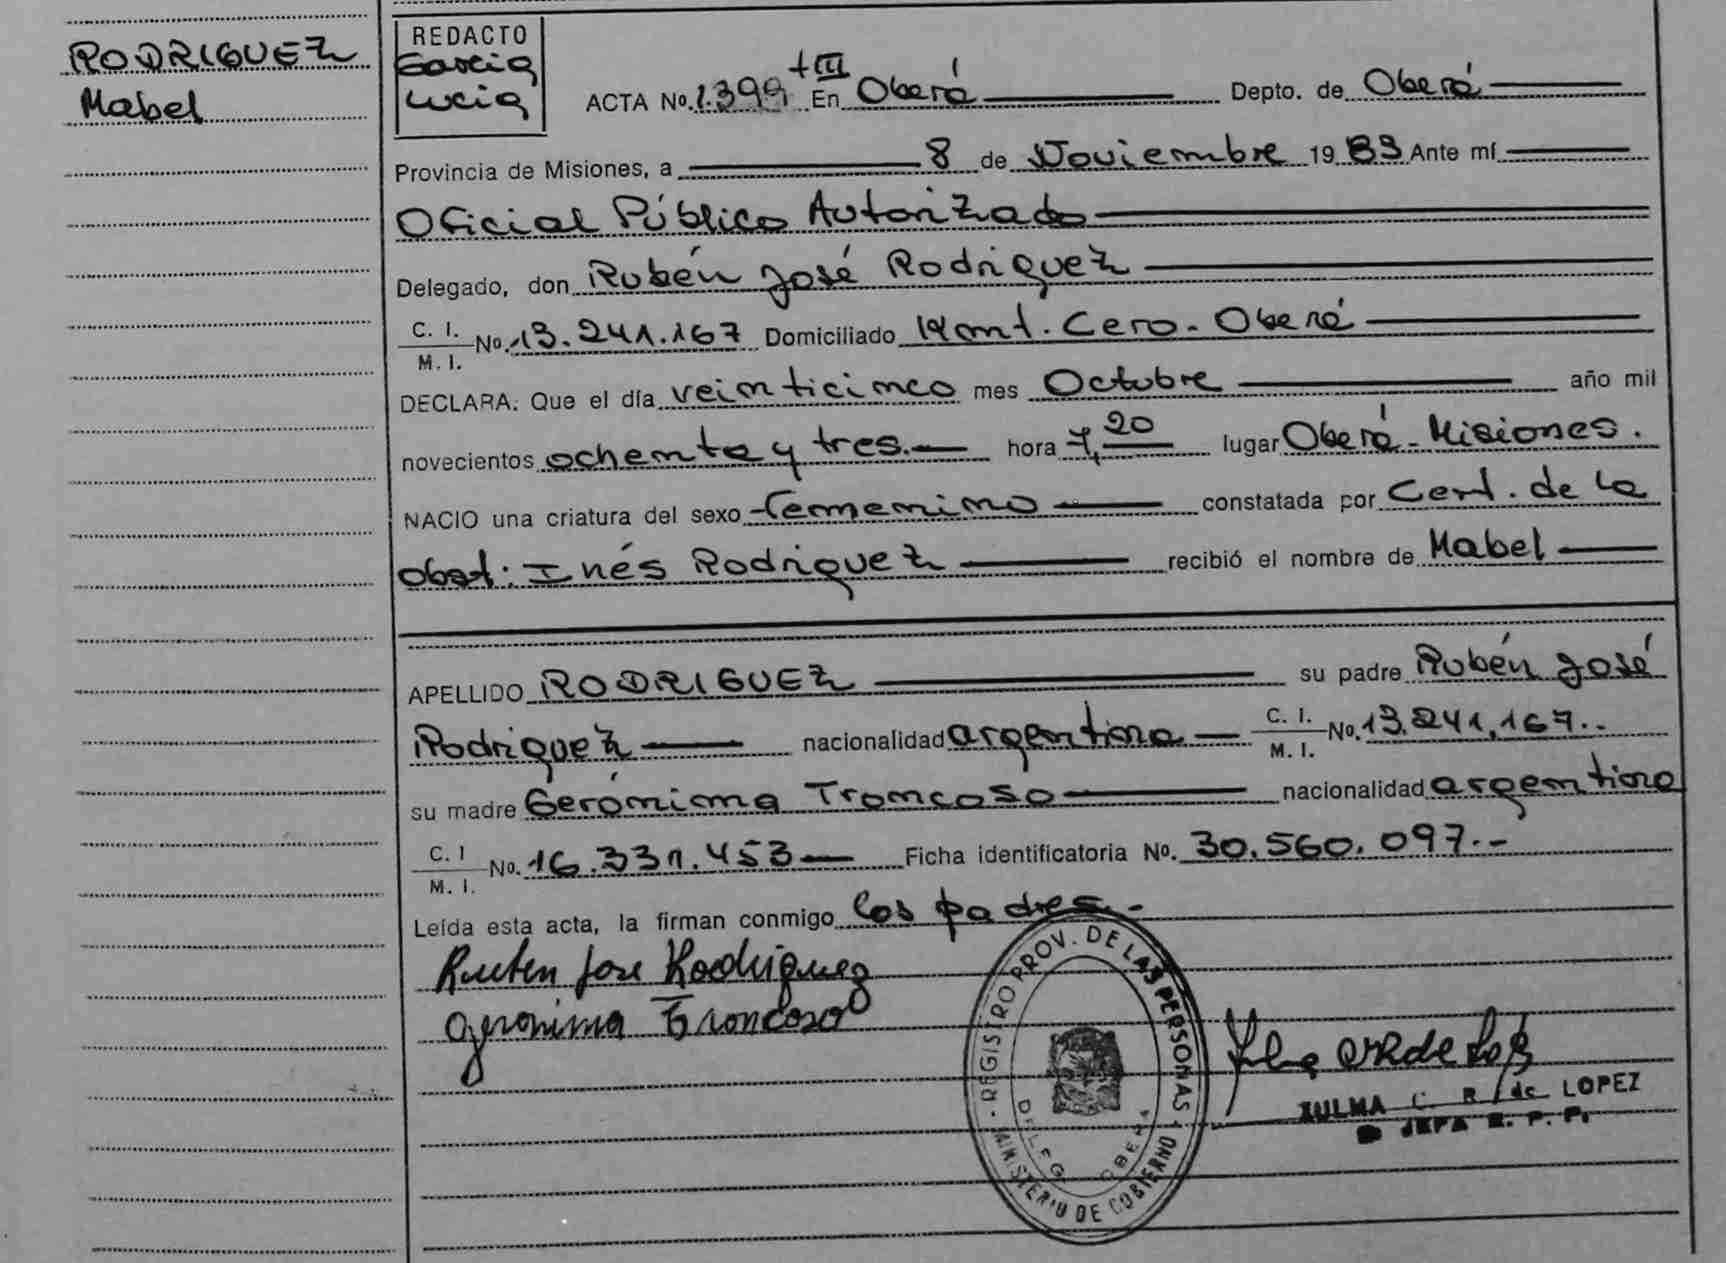 RODRIGUEZ
Mabel
REDACTO
Garcia
Lucia
ACTA No. 1.399 tIII En Oberá Depto. de Oberá
Provincia de Misiones, a 8 de Noviembre 19 83 Ante mí
Oficial Público Autorizado
Delegado, don Rubén José Rodriguez
C. I. M. I. No. 13.241.167 Domiciliado Kmt. Cero - Oberá
DECLARA: Que el día veinticinco mes Octubre año mil
novecientos ochenta y tres.- hora 7,20 lugar Oberá - Misiones.
NACIO una criatura del sexo femenino constatada por Cert. de la
obst: Inés Rodriguez recibió el nombre de Mabel
APELLIDO RODRIGUEZ su padre Rubén José
Rodriguez nacionalidad argentina C. I. M. I. No. 13.241.167.-
su madre Gerónima Troncoso nacionalidad argentina
C. I M. I. No. 16.331.453 Ficha identificatoria No. 30.560.097.-
Leída esta acta, la firman conmigo los padres.-
Ruben Jose Rodriguez
Geronima Troncoso
REGISTRO PROV. DE LAS PERSONAS
MINISTERIO DE GOBIERNO
DELEG. OBERA
ZULMA C. R. de LOPEZ
JEFA R. P. P.